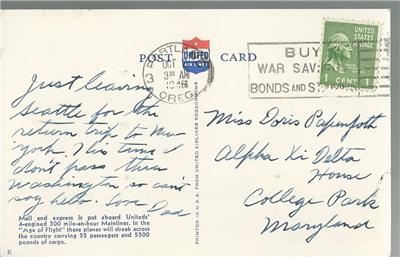 POST CARD
UNITED
AIR LINES
PORTLAND
OCT
3 30 AM
OREG
BUY
WAR SAV
BONDS AND ST
UNITED STATES
POSTAGE
1 CENT 1
Just leaving
Seattle for the
return trip to New
York. This time I
don't pass thru
Washington so can't
say hello. Love Dad
Miss Doris Papenfoth
Alpha Xi Delta
House
College Park
Maryland
Mail and express is put aboard Uniteds'
4-engined 300 mile-an-hour Mainliner. In the
"Age of Flight" these planes will streak across
the country carrying 52 passengers and 5500
pounds of cargo.
PRINTED IN U.S.A. FROM UNITED AIRLINES KODACHROME